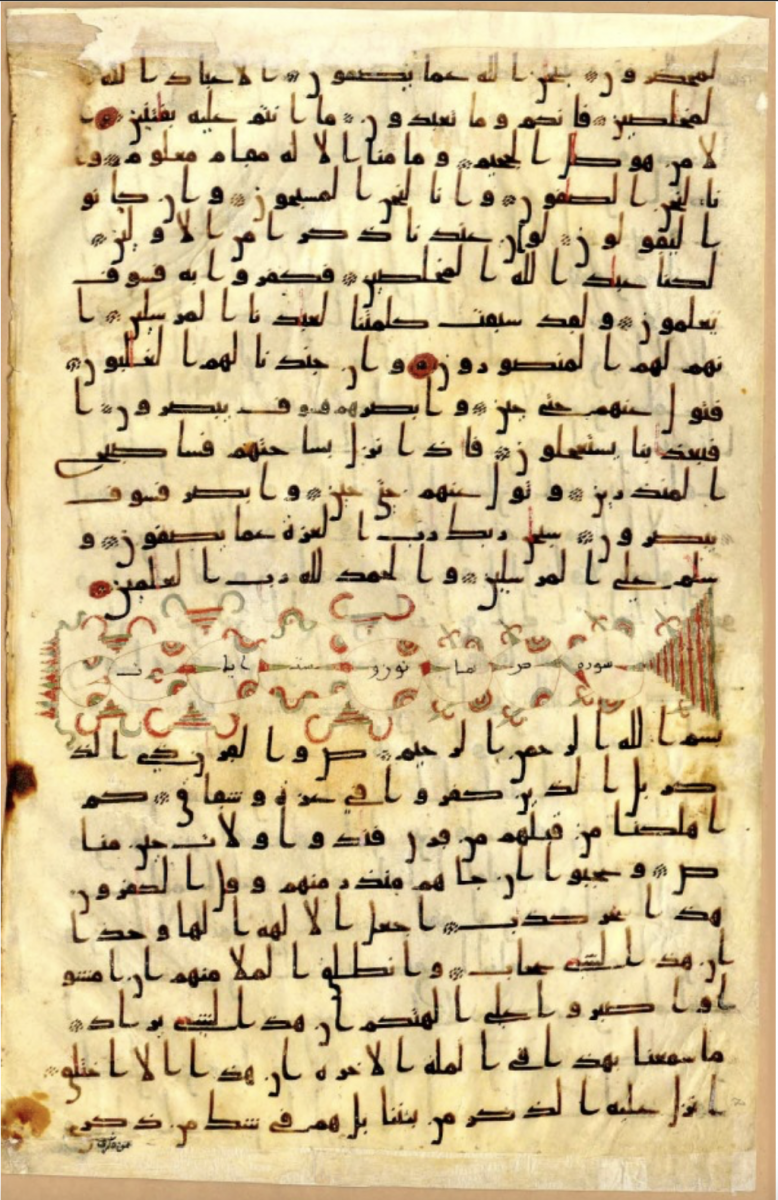 لمحضرون سبحن الله عما يصفون الا عباد الله
المخلصين فانكم وما تعبدون ما انتم عليه بفتنين ا
لا من هو صل الجحيم وما منا الا له مقام معلوم وا
نا لنحن الصفون وانا لنحن المسبحون وان كانو
ا ليقولون لو ان عندنا ذكرا من الاولين
لكنا عبد الله المخلصين فكفروا به فسوف
يعلمون ولقد سبقت كلمتنا لعبدنا المرسلين ا
نهم لهم المنصورون وان جندنا لهم الغلبون
فتول عنهم حتى حين وابصرهم فسوف يبصرون ا
فبعذبنا يستعجلون فاذا نزل بساحتهم فسا صبح
المنذرين وتول عنهم حتى حين وابصر فسوف
يبصرون سبحن ربك رب العزة عما يصفون و
سلم على المرسلين والحمد لله رب العلمين
سورة ص ثمانون و ست ايات
بسم الله الرحمن الرحيم ص والقرن ذي الذ
كر بل الذين كفروا في عزة وشقاق كم
اهلكنا من قبلهم من قرن فندوا ولات حين منا
ص وعجبوا ان جاهم منذر منهم وقل الكفرون
هذا سحر كذب اجعل الالهة الها وحدا
ان هذا لشي عجاب وانطلق الملا منهم ان امشو
ا واصبروا على الهتكم ان هذا لشي يراد
ما سمعنا بهذا في الملة الاخرة ان هذا الا اختلق
انزل عليه الذكر من بيننا بل هم في شك من ذكري